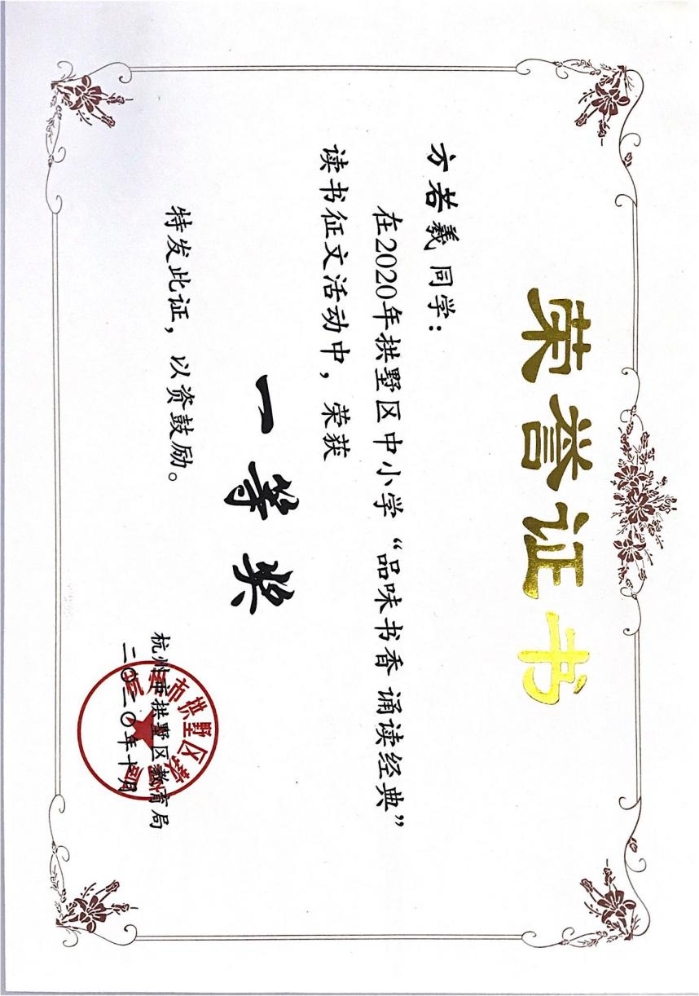 荣誉证书
方若羲 同学：
在2020年拱墅区中小学“品味书香 诵读经典”
读书征文活动中，荣获
一等奖
特发此证，以资鼓励。
杭州市拱墅区教育局
二〇二〇年十月